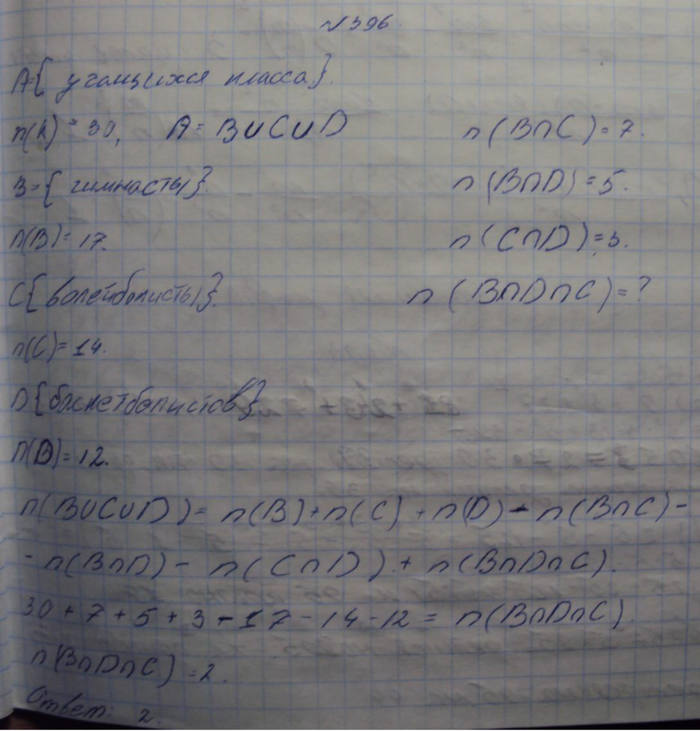 №396
A={ учащихся класса}.
n(A) = 30, A = B∪C∪D n(B∩C)=7.
B={ гимнасты} n(B∩D)=5.
n(B)=17. n(C∩D)=3.
C{волейболисты}. n(B∩D∩C)=?
n(C)=14.
D{баскетболистов}
n(D)=12.
n(B∪C∪D)= n(B)+n(C)+n(D)-n(B∩C)-
-n(B∩D)- n(C∩D)+n(B∩D∩C).
30+7+5+3-17-14-12= n(B∩D∩C)
n(B∩D∩C)=2.
Ответ: 2.